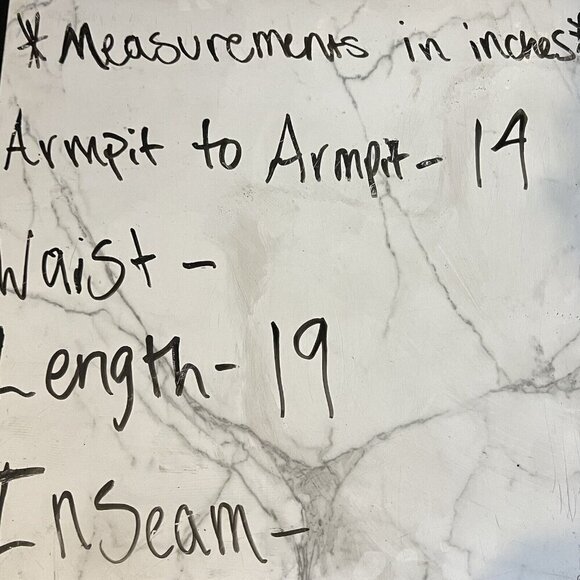 *Measurements in inches*
Armpit to Armpit- 14
Waist -
Length- 19
InSeam -